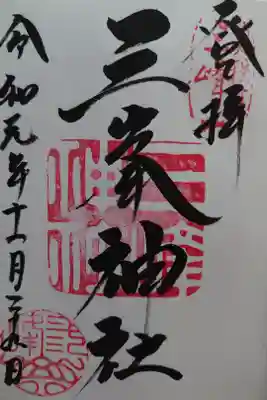 登拝
三峯神社
令和元年十一月二十五日